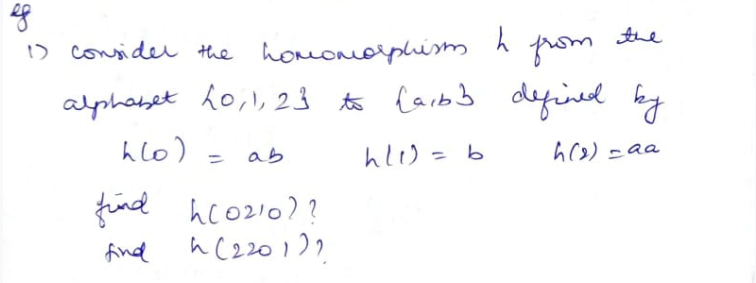 eg
1) consider the homomorphism h from the
alphabet {0,1,2} to {a,b} defined by
h(0) = ab h(1) = b h(2) = aa
find h(0210)?
find h(2201)?